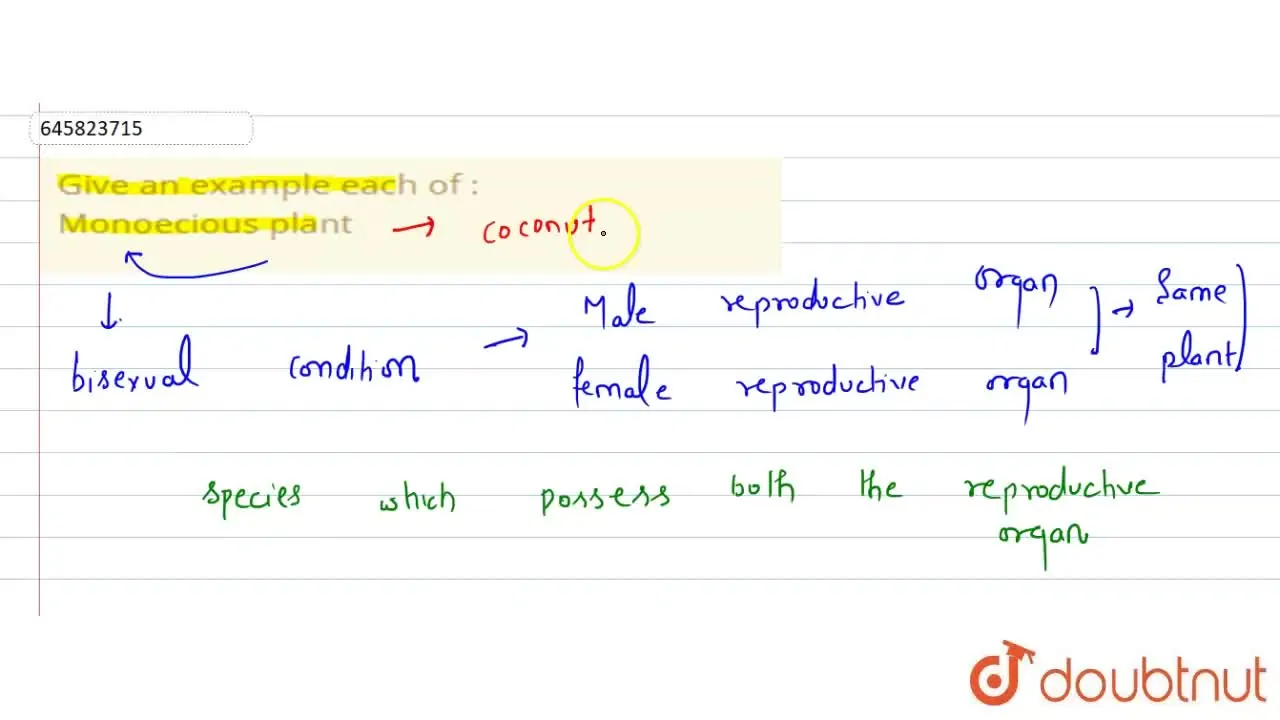 645823715
Give an example each of :
Monoecious plant → coconut
Male reproductive organ
female reproductive organ
→ Same plant
bisexual condition →
species which possess both the reproductive
organ
doubtnut